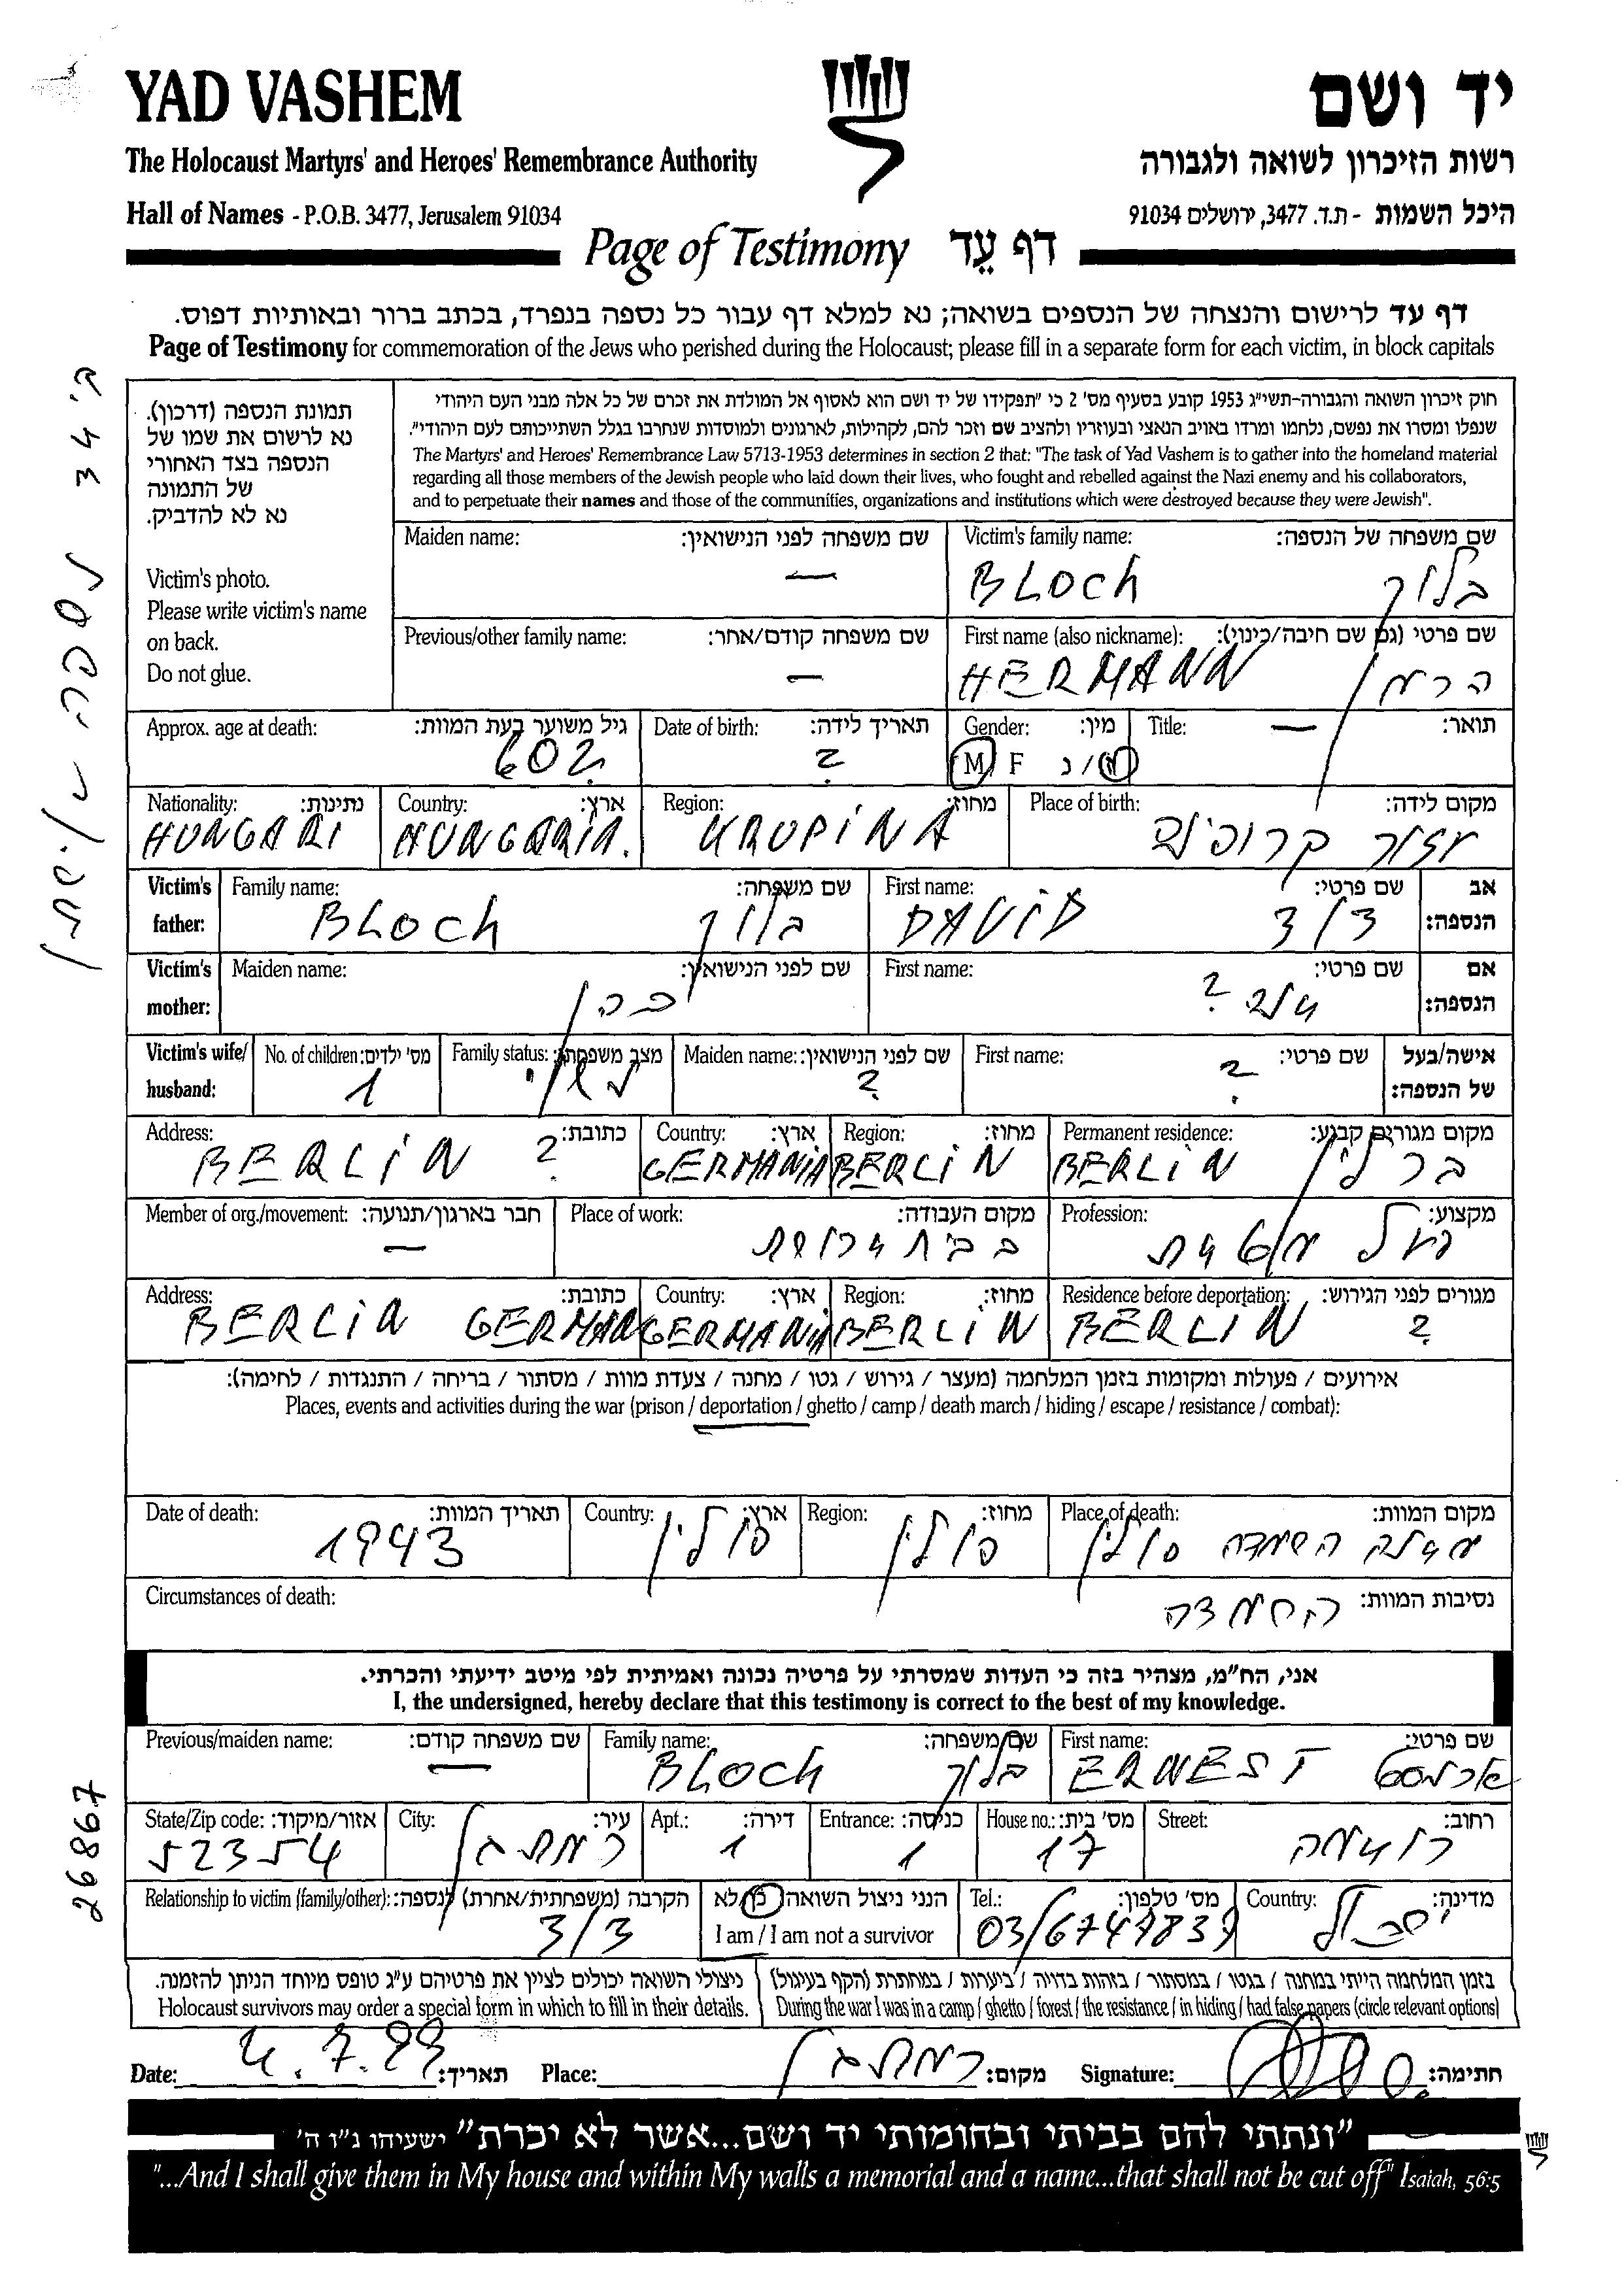 YAD VASHEM
יד ושם
The Holocaust Martyrs' and Heroes' Remembrance Authority
רשות הזיכרון לשואה ולגבורה
Hall of Names - P.O.B. 3477, Jerusalem 91034
היכל השמות - ת.ד. 3477, ירושלים 91034
Page of Testimony דף עֵד
דף עד לרישום והנצחה של הנספים בשואה; נא למלא דף עבור כל נספה בנפרד, בכתב ברור ובאותיות דפוס.
Page of Testimony for commemoration of the Jews who perished during the Holocaust; please fill in a separate form for each victim, in block capitals
תמונת הנספה (דרכון).
נא לרשום את שמו של
הנספה בצד האחורי
של התמונה
נא לא להדביק.
Victim's photo.
Please write victim's name
on back.
Do not glue.
חוק זיכרון השואה והגבורה-תשי"ג 1953 קובע בסעיף מס' 2 כי "תפקידו של יד ושם הוא לאסוף אל המולדת את זכרם של כל אלה מבני העם היהודי
שנפלו ומסרו את נפשם, נלחמו ומרדו באויב הנאצי ובעוזריו ולהציב שם וזכר להם, לקהילות, לארגונים ולמוסדות שנחרבו בגלל השתייכותם לעם היהודי".
The Martyrs' and Heroes' Remembrance Law 5713-1953 determines in section 2 that: "The task of Yad Vashem is to gather into the homeland material
regarding all those members of the Jewish people who laid down their lives, who fought and rebelled against the Nazi enemy and his collaborators,
and to perpetuate their names and those of the communities, organizations and institutions which were destroyed because they were Jewish".
Maiden name: שם משפחה לפני הנישואין: Victim's family name: שם משפחה של הנספה:
— BLOCH בלוך
Previous/other family name: שם משפחה קודם/אחר: First name (also nickname): שם פרטי (גם שם חיבה/כינוי):
— HERMANN הרמן
Approx. age at death: גיל משוער בעת המוות: Date of birth: תאריך לידה: Gender: מין: Title: תואר:
60? ? M F ז/נ —
Nationality: נתינות: Country: ארץ: Region: מחוז: Place of birth: מקום לידה:
HUNGARI HUNGARIA. KRUPINA אזור קרופינה
Victim's father: Family name: שם משפחה: First name: שם פרטי: אב הנספה:
BLOCH בלוך DAVID דוד
Victim's mother: Maiden name: שם לפני הנישואין: First name: שם פרטי: אם הנספה:
כהן ?
Victim's wife/ husband: No. of children: מס' ילדים: Family status: מצב משפחתי: Maiden name: שם לפני הנישואין: First name: שם פרטי: אישה/בעל של הנספה:
1 נשוי ? ?
Address: כתובת: Country: ארץ: Region: מחוז: Permanent residence: מקום מגורים קבוע:
BERLIN ? GERMANIA BERLIN BERLIN ברלין
Member of org./movement: חבר בארגון/תנועה: Place of work: מקום העבודה: Profession: מקצוע:
— בבית חרושת
Address: כתובת: Country: ארץ: Region: מחוז: Residence before deportation: מגורים לפני הגירוש:
BERLIN GERMAN GERMANIA BERLIN BERLIN ?
אירועים / פעולות ומקומות בזמן המלחמה (מעצר / גירוש / גטו / מחנה / צעדת מוות / מסתור / בריחה / התנגדות / לחימה):
Places, events and activities during the war (prison / deportation / ghetto / camp / death march / hiding / escape / resistance / combat):
Date of death: תאריך המוות: Country: ארץ: Region: מחוז: Place of death: מקום המוות:
1943 פולין פולין מחנה השמדה פולין
Circumstances of death: נסיבות המוות:
השמדה
אני, הח"מ, מצהיר בזה כי העדות שמסרתי על פרטיה נכונה ואמיתית לפי מיטב ידיעתי והכרתי.
I, the undersigned, hereby declare that this testimony is correct to the best of my knowledge.
Previous/maiden name: שם משפחה קודם: Family name: שם משפחה: First name: שם פרטי:
— BLOCH בלוך ERNEST ארנסט
State/Zip code: אזור/מיקוד: City: עיר: Apt.: דירה: Entrance: כניסה: House no.: מס' בית: Street: רחוב:
52354 רמת גן 1 1 17
Relationship to victim (family/other): הקרבה (משפחתית/אחרת) לנספה: הנני ניצול השואה כן/לא Tel.: מס' טלפון: Country: מדינה:
דוד I am / I am not a survivor 03/6747839 ישראל
ניצולי השואה יכולים לציין את פרטיהם ע"ג טופס מיוחד הניתן להזמנה.
Holocaust survivors may order a special form in which to fill in their details.
בזמן המלחמה הייתי במחנה / בגטו / במסתור / בזהות בדויה / ביערות / במחתרת (הקף בעיגול)
During the war I was in a camp / ghetto / forest / the resistance / in hiding / had false papers (circle relevant options)
Date: 4.7.99 תאריך: Place: רמת גן מקום: Signature: חתימה:
"ונתתי להם בביתי ובחומותי יד ושם...אשר לא יכרת" ישעיהו נ"ו ה'
"...And I shall give them in My house and within My walls a memorial and a name...that shall not be cut off" Isaiah, 56:5
26867